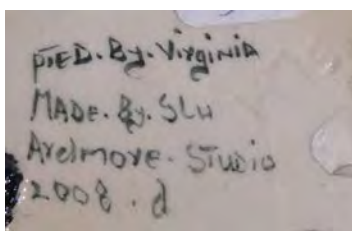 PIED. By. VirginiA
MADe. By. SLu
Ardmore. Studio
2008. d